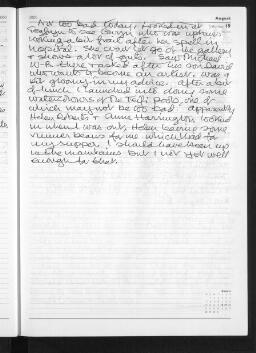 August
19
Not too bad today, looked in at
to see Gwyn who was upstairs
looking a bit frail after her spell in
hospital. She won't let go of the gallery
& shows a lot of guts. Saw Michael
W-R there & asked after his son David
who wants to become an artist. Was a
bit gloomy in my advice. After a bit
of lunch I launched into doing some
watercolours of the Teifi pools, one of
which may not be too bad. Apparently
Helen Roberts & Anne Harrington looked
in when I was out, Helen leaving some
runner beans for me which I had for
my supper. I should have been up
in the mountains but I'm not yet well
enough for that.